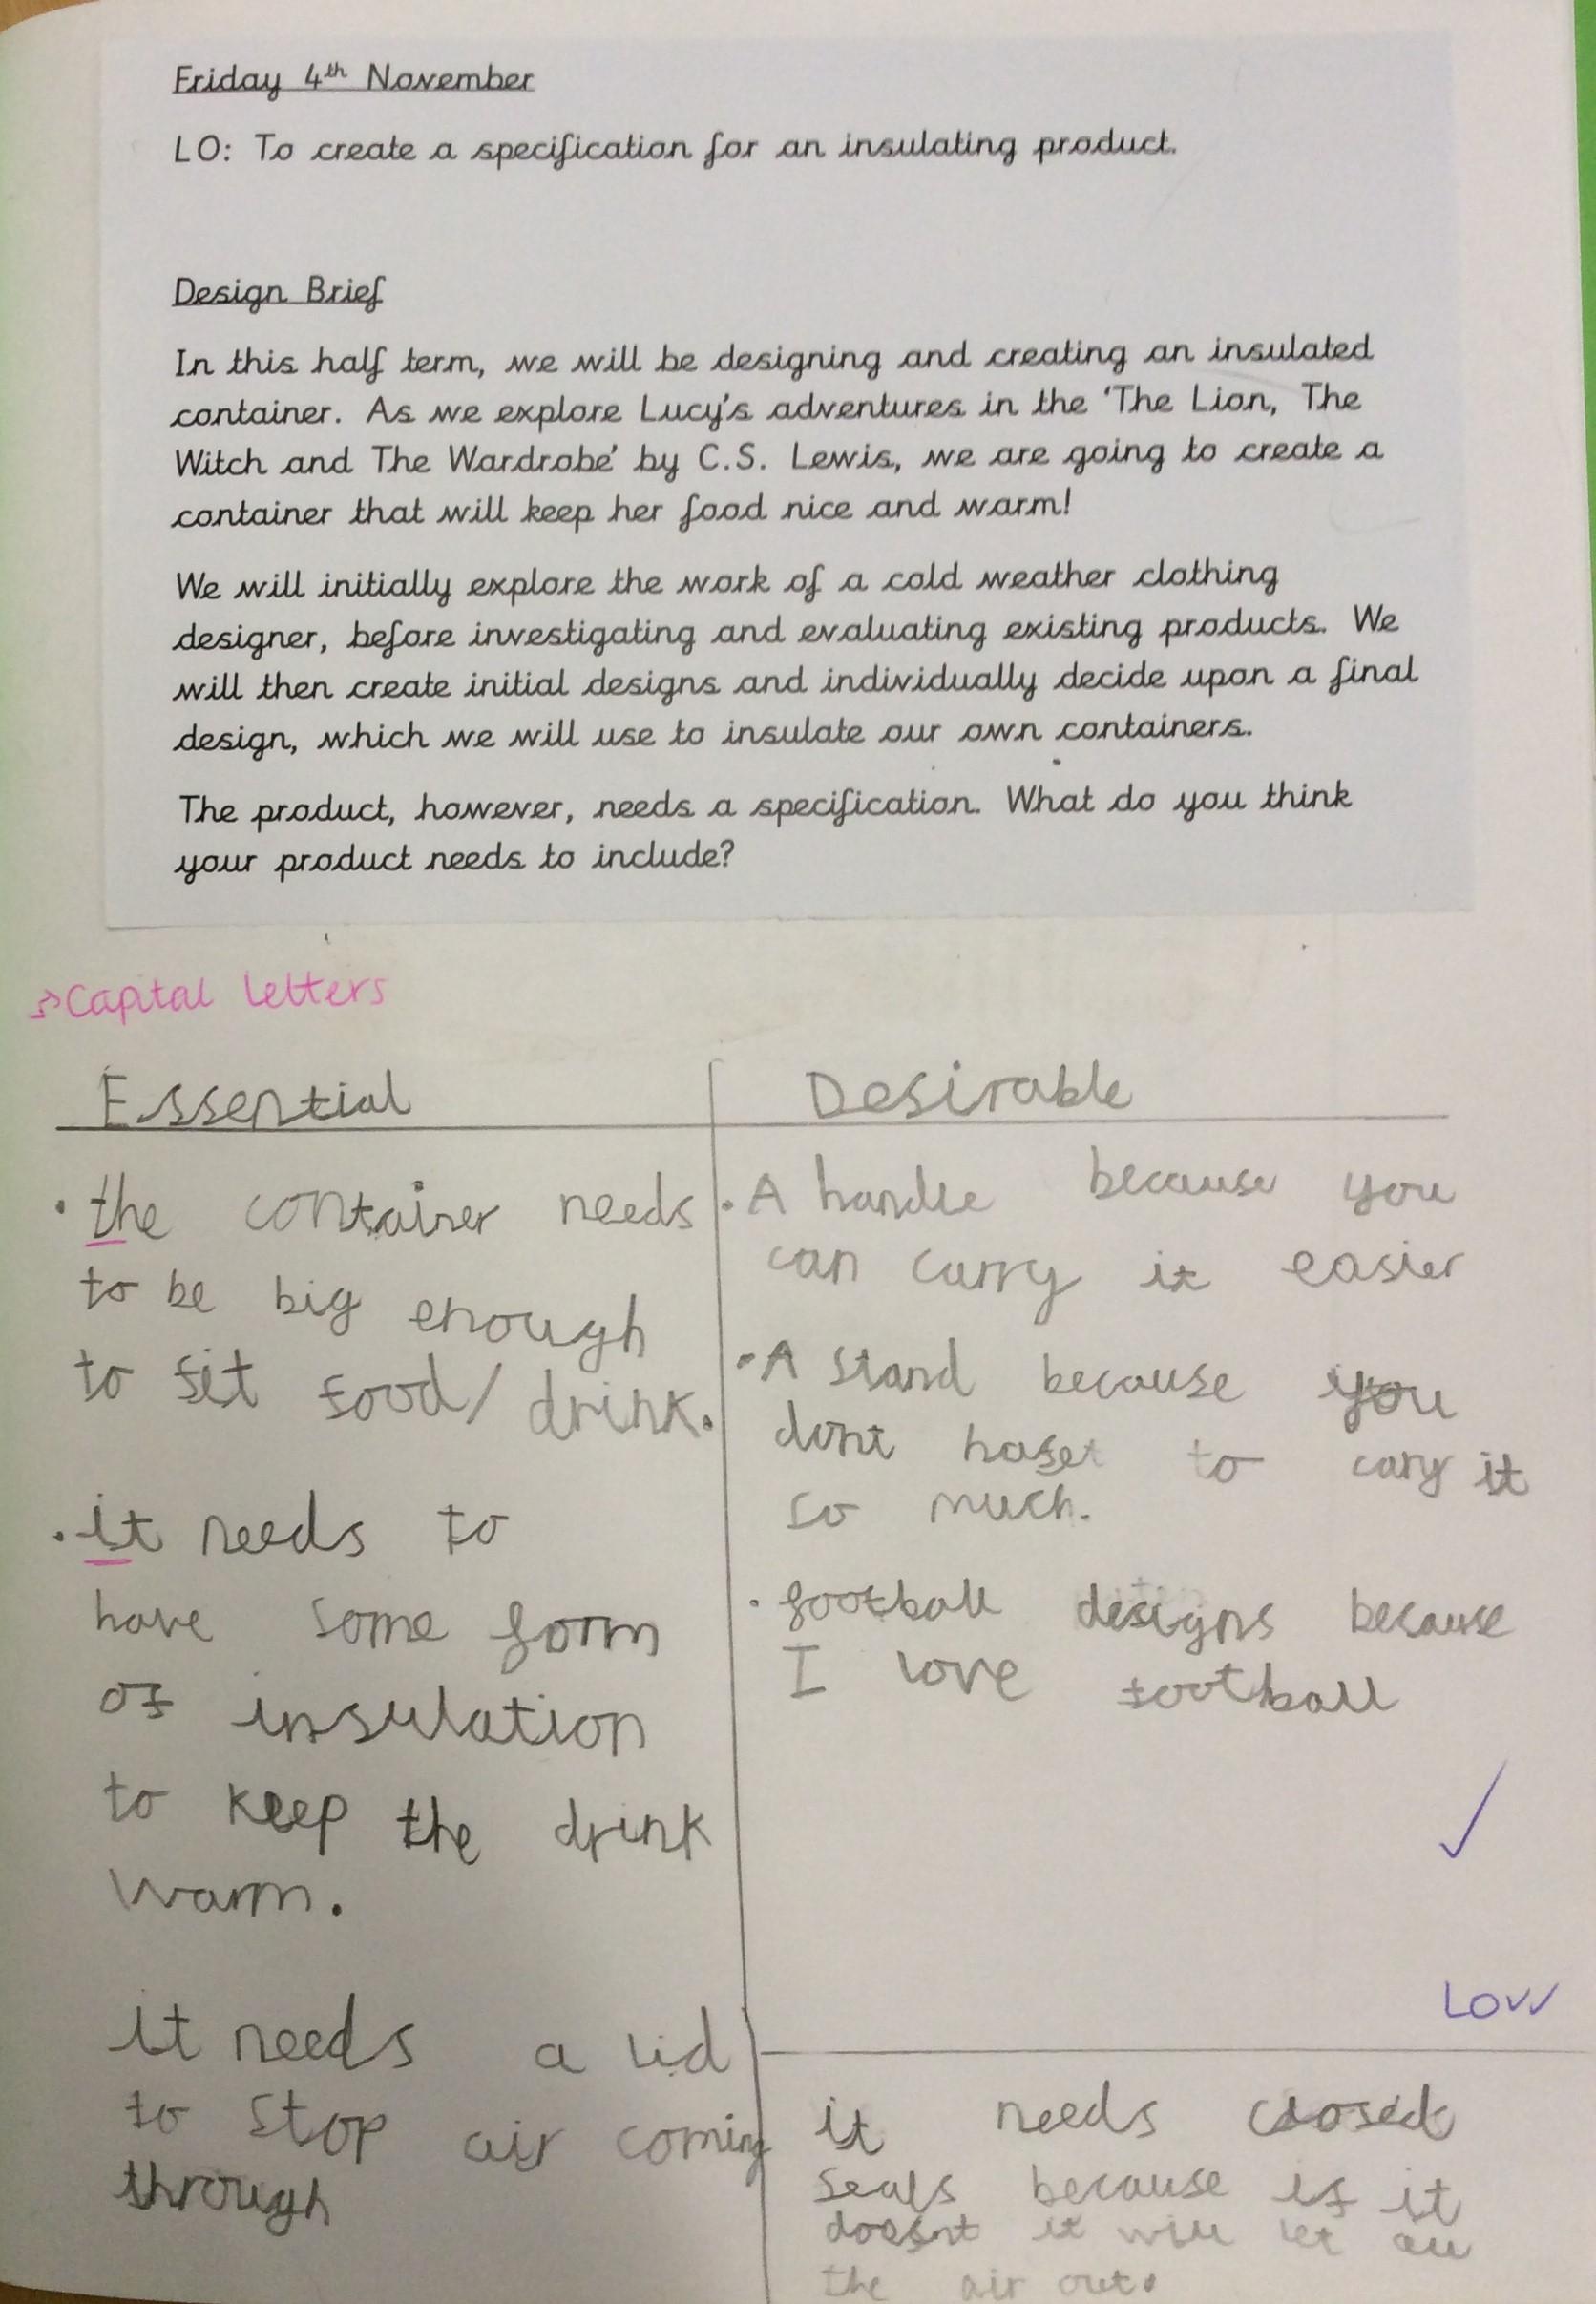 Friday 4th November
LO: To create a specification for an insulating product.
Design Brief
In this half term, we will be designing and creating an insulated
container. As we explore Lucy's adventures in the 'The Lion, The
Witch and The Wardrobe' by C.S. Lewis, we are going to create a
container that will keep her food nice and warm!
We will initially explore the work of a cold weather clothing
designer, before investigating and evaluating existing products. We
will then create initial designs and individually decide upon a final
design, which we will use to insulate our own containers.
The product, however, needs a specification. What do you think
your product needs to include?
Capital letters
Essential
• the container needs
to be big enough
to fit food/ drink.
• it needs to
have some form
of insulation
to keep the drink
warm.
it needs a lid
to stop air coming
through
Desirable
• A handle because you
can carry it easier
• A stand because you
dont to cary it
so much.
• football designs because
I love football
Low
it needs closed
seals because if it
doesnt it will let all
the air out.